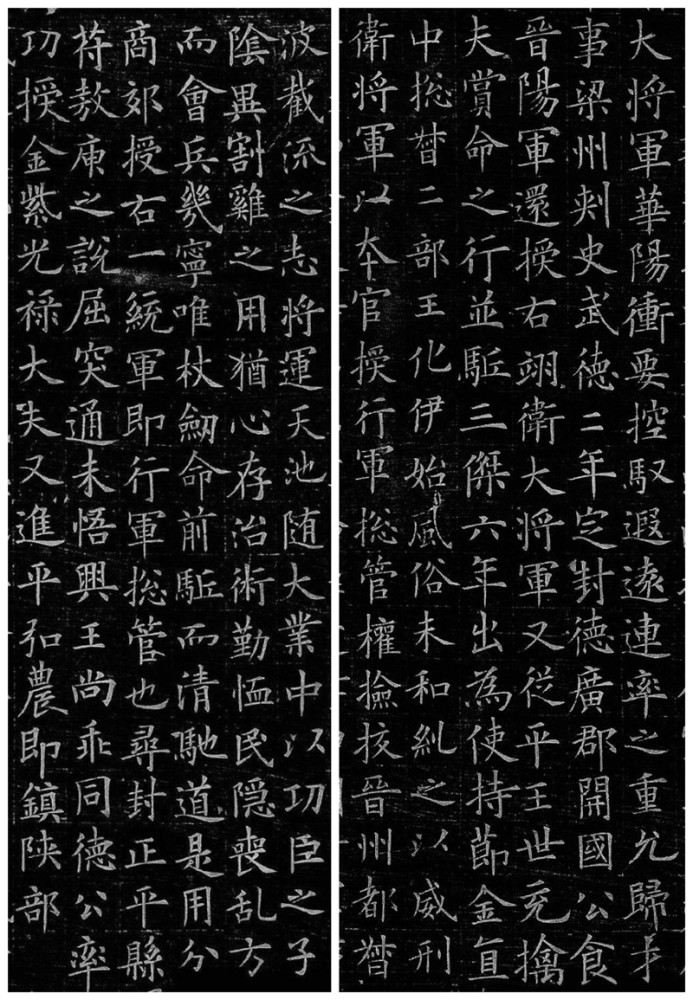 大將軍華陽衝要控馭遐遠連率之重允歸才
事梁州刺史武德二年定封德廣郡開國公食
晉陽軍還授右翊衛大將軍又從平王世充擒
夫賞命之行並駈三傑六年出為使持節金直
中揔督二部王化伊始風俗未和糺之以威刑
衛將軍以本官授行軍揔管權撿挍晉州都督
波截流之志將運天池随大業中以功臣之子
陰異割雞之用猶心存治術勤恤民隱喪乱方
而會兵幾寧唯杖劒命前駈而清馳道是用分
商郊授右一統軍即行軍揔管也尋封正平縣
苻敖庾之說屈突通未悟興王尚乖同德公率
功授金紫光祿大夫又進平弘農即鎮陝部